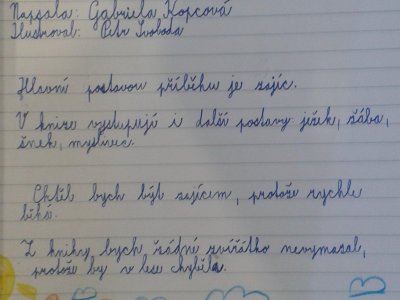 Napsala: Gabriela Kopcová
Ilustroval: Petr Svoboda
Hlavní postavou příběhu je zajíc.
V knize vystupují i další postavy: ježek, žába,
šnek, myslivec.
Chtěl bych být zajícem, protože rychle
běhá.
Z knihy bych žádné zvířátko nevymazal,
protože by v lese chybělo.